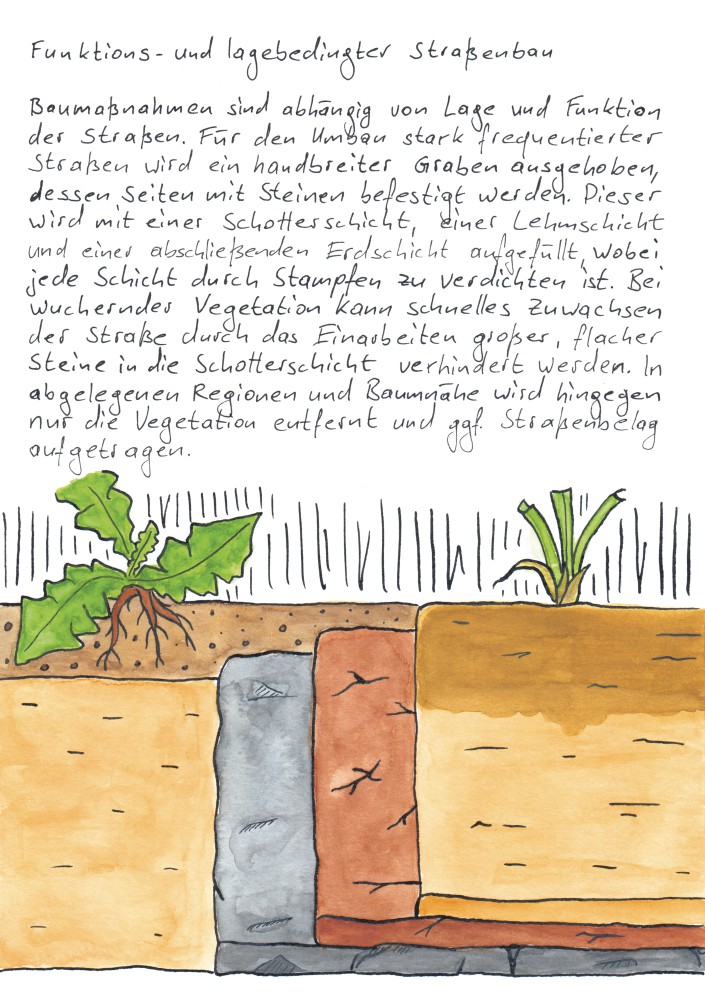 Funktions- und lagebedingter Straßenbau
Baumaßnahmen sind abhängig von Lage und Funktion
der Straßen. Für den Umbau stark frequentierter
Straßen wird ein handbreiter Graben ausgehoben,
dessen Seiten mit Steinen befestigt werden. Dieser
wird mit einer Schotterschicht, einer Lehmschicht
und einer abschließenden Erdschicht aufgefüllt, wobei
jede Schicht durch Stampfen zu verdichten ist. Bei
wuchernder Vegetation kann schnelles Zuwachsen
der Straße durch das Einarbeiten großer, flacher
Steine in die Schotterschicht verhindert werden. In
abgelegenen Regionen und Baumnähe wird hingegen
nur die Vegetation entfernt und ggf. Straßenbelag
aufgetragen.